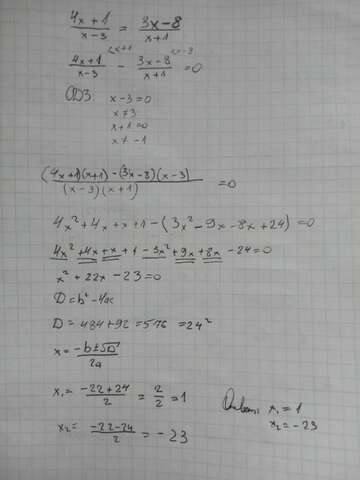 (4x+1)/(x-3) = (3x-8)/(x+1)
(4x+1)/(x-3) ^(x+1) - (3x-8)/(x+1) ^(x-3) = 0
ОДЗ: x-3=0
x≠3
x+1=0
x≠-1
((4x+1)(x+1)-(3x-8)(x-3))/((x-3)(x+1)) = 0
4x²+4x+x+1-(3x²-9x-8x+24)=0
4x²+4x+x+1-3x²+9x+8x-24=0
x²+22x-23=0
D=b²-4ac
D=484+92=576=24²
x=(-b±√D)/2a
x₁=(-22+24)/2=2/2=1
x₂=(-22-24)/2=-23
Ответ: x₁=1
x₂=-23